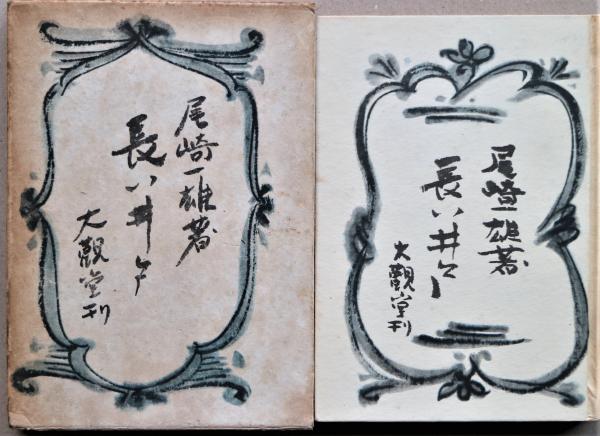 尾崎一雄著
長い井戸
大觀堂刊
尾崎一雄著
長い井戸
大觀堂刊